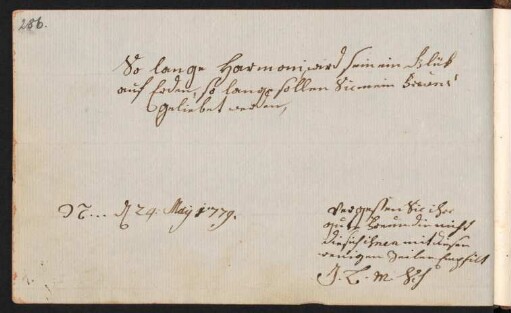 286.
So lange Harmoni wird sein ein Glük
auf Erden, so lange sollen Sie mein
geliebet werden,
N... d 24. Maÿ 1779.
Vergessen Sie ihre
gute Freundin nicht
die sich ihnen mit diesen
wenigen Zeilen Empfihlt
J. L. M.